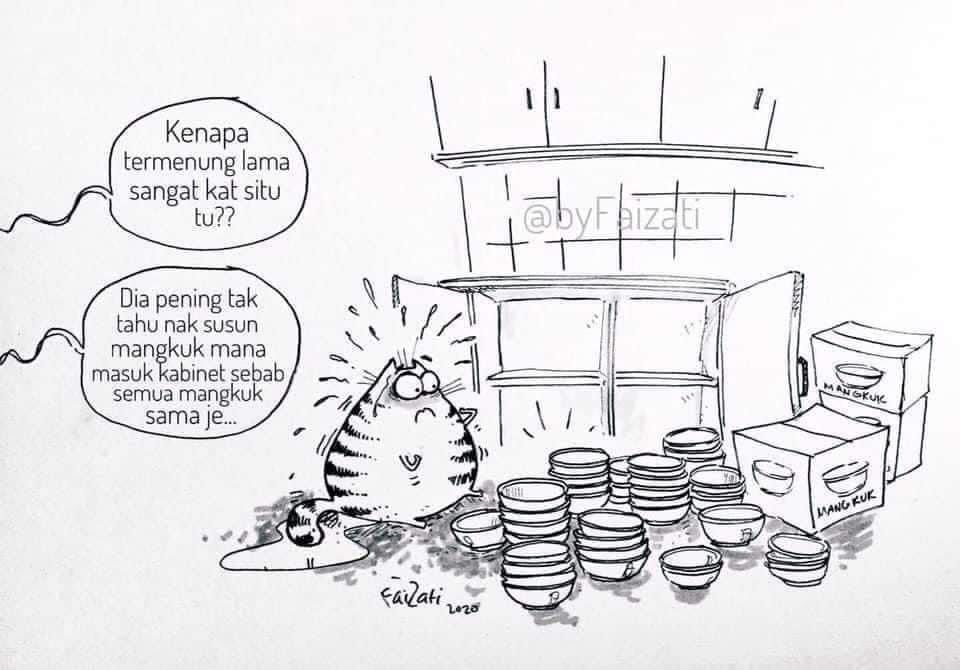 Kenapa
termenung lama
sangat kat situ
tu??
Dia pening tak
tahu nak susun
mangkuk mana
masuk kabinet sebab
semua mangkuk
sama je...
@byFaizati
MANGKUK
MANGKUK
Faizati
2020